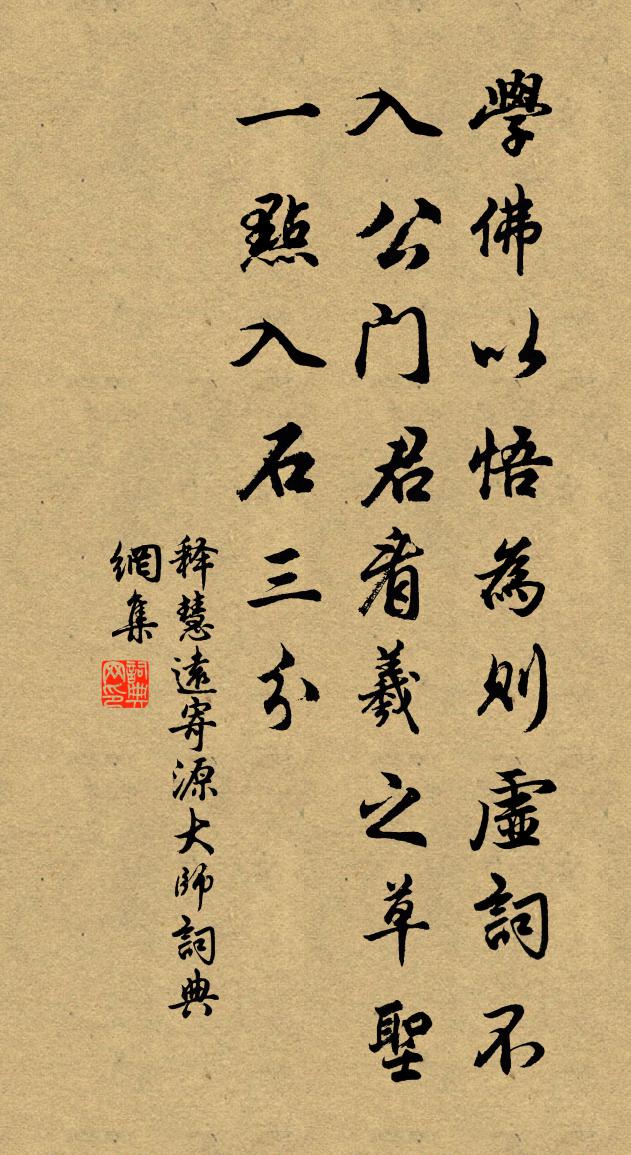 學佛以悟為則虛詞不
入公門君看羲之草聖
一點入石三分
释慧遠寄源大師詞典
網集
詞典網印